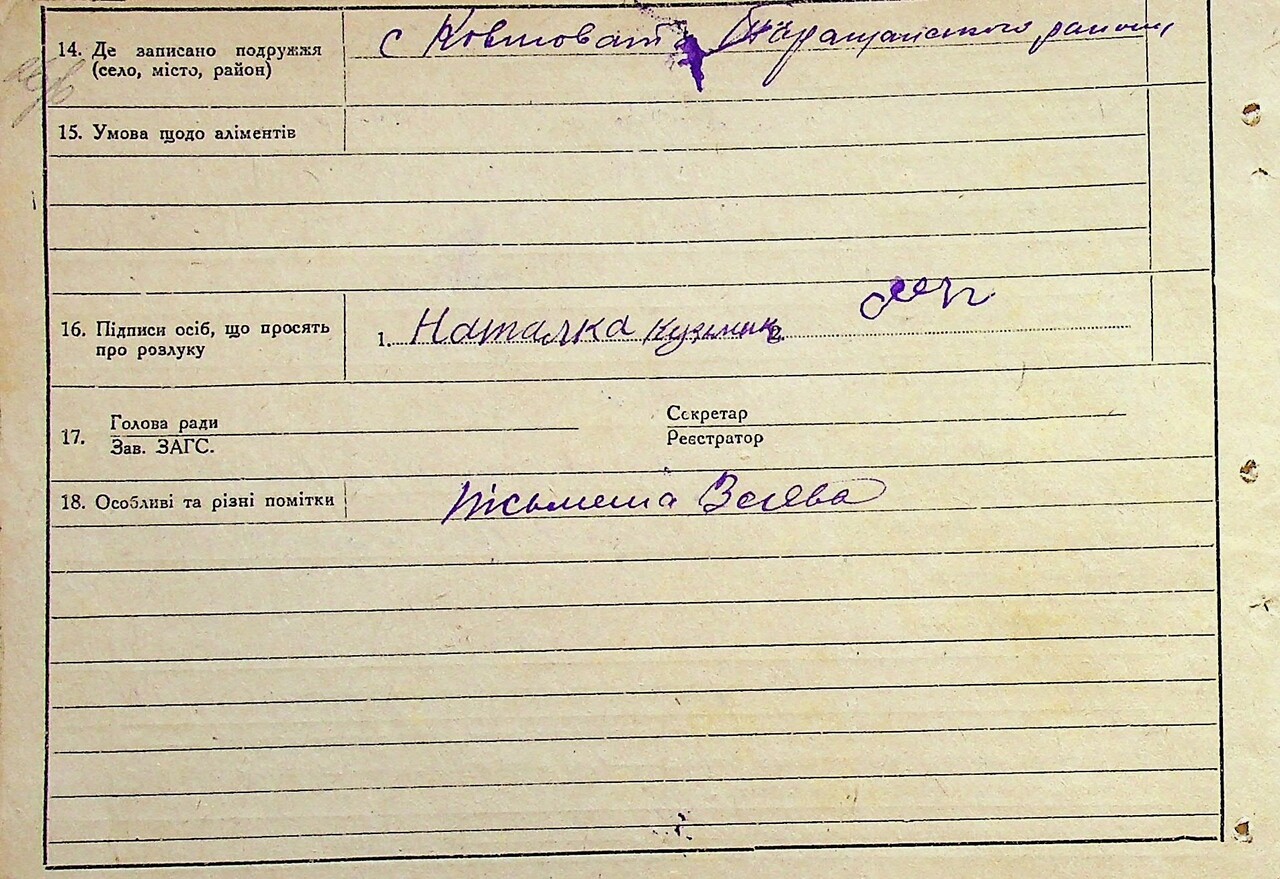 14. Де записано подружжя с Ковшоват Таращанського району
(село, місто, район)
15. Умова щодо аліментів
16. Підписи осіб, що просять
про розлуку 1. Наталка Кузьмик 2.
17. Голова ради Секретар
Зав. ЗАГС. Реєстратор
18. Особливі та різні помітки Письмена